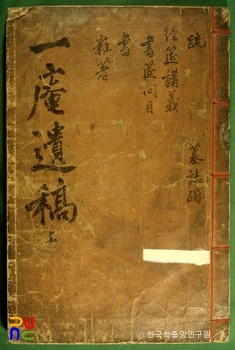 疏
經筵講義
書筵問目
書
雜著
墓誌碣
一庵遺稿 上
ⓒ 한국학중앙연구원